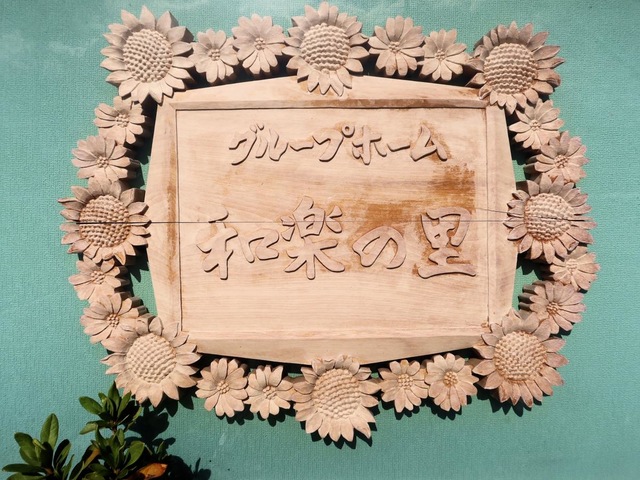 グループホーム
和楽の里